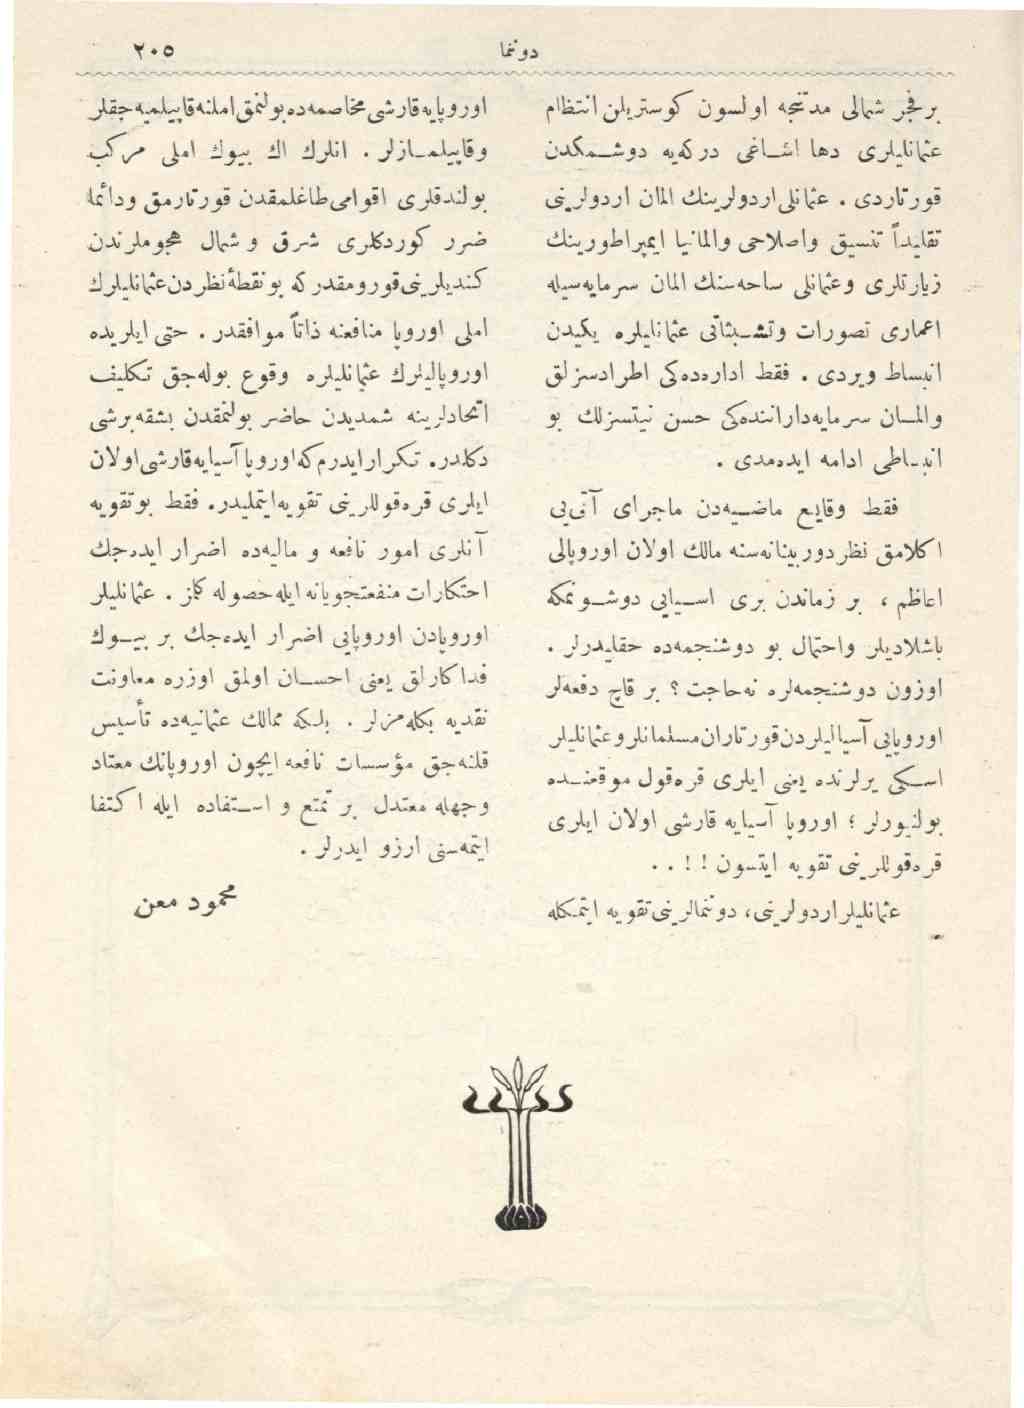 دوننما
٢٠٥
بر فجر شمالى مدتنجه اولسون كوستريلن انتظام
عثمانليلرى دها اشاغى دركه‌يه دوشمكدن
قورتاردى . عثمانلى اردولرينك المان اردولرينى
تقليداً تنسيق واصلاحى والمانيا ايمپراطورينك
زيارتلرى وعثمانلى ساحه‌سنك المان سرمايه‌سيله
اعمارى تصورات وتشبثاتى عثمانليلره يكيدن
انبساط ويردى . فقط اداره‌ده‌كى اطرادسزلق
والمان سرمايه‌دارانده‌كى حسن نيتسزلك بو
انبساطى ادامه ايده‌مدى .
فقط وقايع ماضيه‌دن ماجراى آتى‌يى
اكلامق نظر دوربينانه‌سنه مالك اولان اوروپالى
اعاظم ، بر زماندن برى اسيايى دوشونمكه
باشلاديلر واحتمال بو دوشنجه‌ده حقليدرلر .
اوزون دوشنجه‌لره نه‌حاجت ؟ بر قاچ دفعه‌لر
اوروپايى آسياليلردن قورتاران مسلمانلر وعثمانليلر
اسكى يرلرنده يعنى ايلرى قره‌قول موقعنده
بولنيورلر ؛ اوروپا آسيايه قارشى اولان ايلرى
قره‌قوللرينى تقويه ايتسون ! ! . .
عثمانليلر اردولرينى، دوننمالرينى تقويه ايتمكله
اوروپايه قارشى مخاصمه‌ده بولنمق املنه قاپيلميه‌جقلر
وقاپيلمازلر . انلرك اك بيوك املى مركب
بولندقلرى اقوامى طاغلمقدن قورتارمق ودائما
ضرر كوردكلرى شرق و شمال هجوملرندن
كنديلرينى قورومقدركه بو نقطهٔ نظردن عثمانليلرك
املى اوروپا منافعنه ذاتاً موافقدر . حتى ايلريده
اوروپاليلرك عثمانليلره وقوع بوله‌جق تكليف
اتحادلرينه شمديدن حاضر بولنمقدن بشقه برشى
دكلدر. تكرار ايدرم كه اوروپا آسيايه قارشى اولان
ايلرى قره‌قوللرينى تقويه ايتمليدر. فقط بو تقويه
آنلرى امور نافعه و ماليه‌ده اضرار ايده‌جك
احتكارات منفعتجويانه ايله حصوله كلمز . عثمانليلر
اوروپادن اوروپايى اضرار ايده‌جك بر بيوك
فداكارلق يعنى احسان اولمق اوزره معاونت
نقديه بكله‌مزلر . بلكه ممالك عثمانيه‌ده تأسيس
قلنه‌جق مؤسسات نافعه ايچون اوروپانك معتاد
وجهله معتدل بر تمتع و استفاده ايله اكتفا
ايتمه‌سنى ارزو ايدرلر .
محمود معين